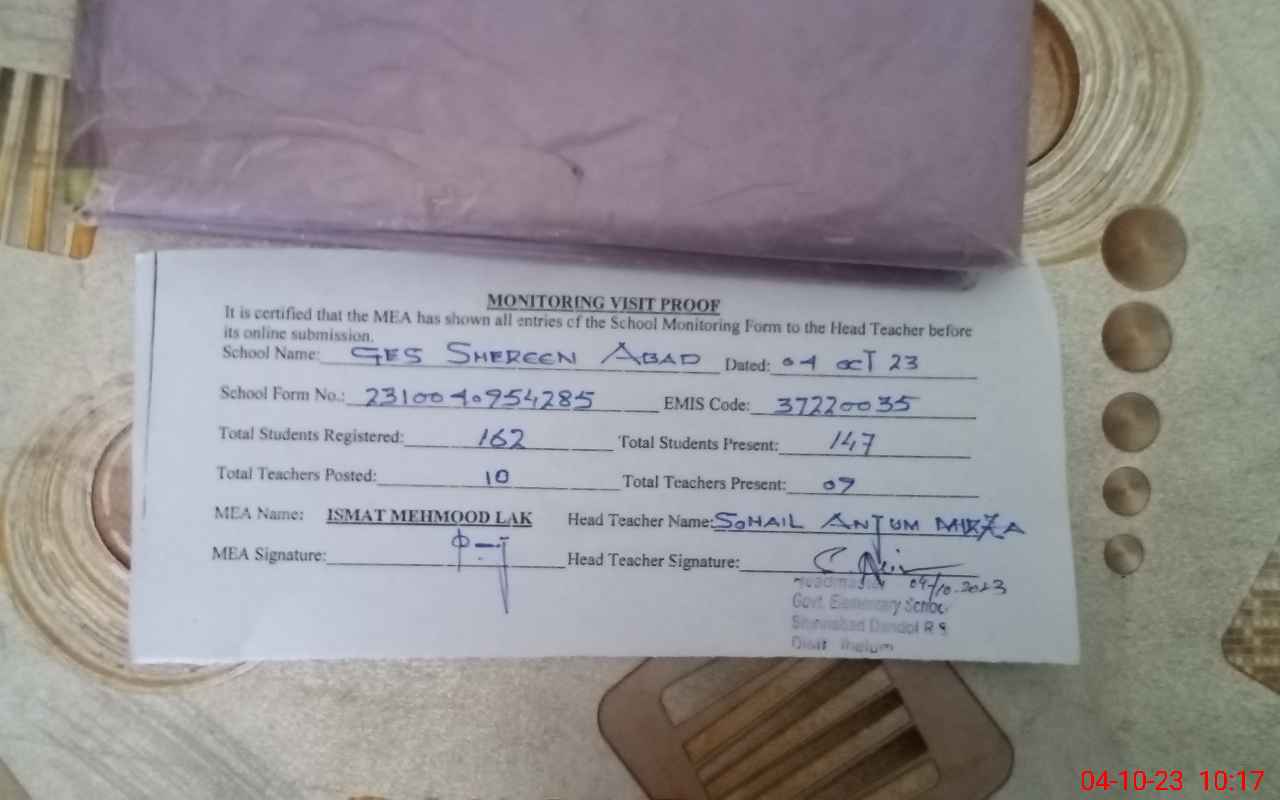 MONITORING VISIT PROOF
It is certified that the MEA has shown all entries of the School Monitoring Form to the Head Teacher before
its online submission.
School Name: GES SHEREEN ABAD Dated: 04 OCT 23
School Form No.: 2310040954285 EMIS Code: 37220035
Total Students Registered: 162 Total Students Present: 147
Total Teachers Posted: 10 Total Teachers Present: 09
MEA Name: ISMAT MEHMOOD LAK Head Teacher Name: SOHAIL ANJUM MIRZA
MEA Signature: Head Teacher Signature:
04/10-2023
Headmaster
Govt. Elementary School
Shirinabad Dandot R S
Distt Jhelum
04-10-23 10:17